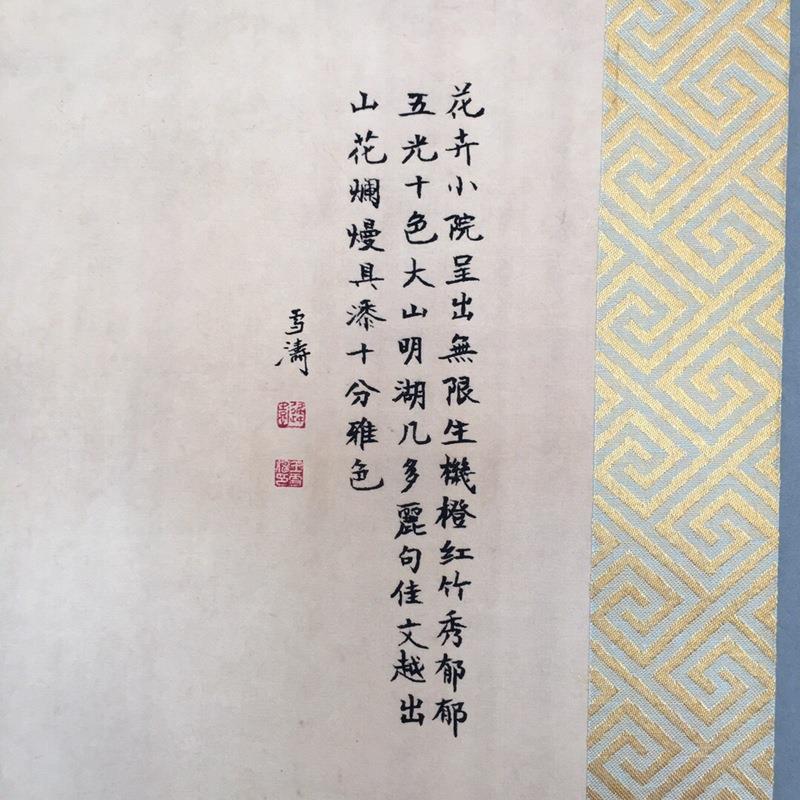 花卉小院呈出無限生機橙红竹秀郁郁
五光十色大山明湖几多麗句佳文越出
山花爛熳具漆十分雅色
雪濤